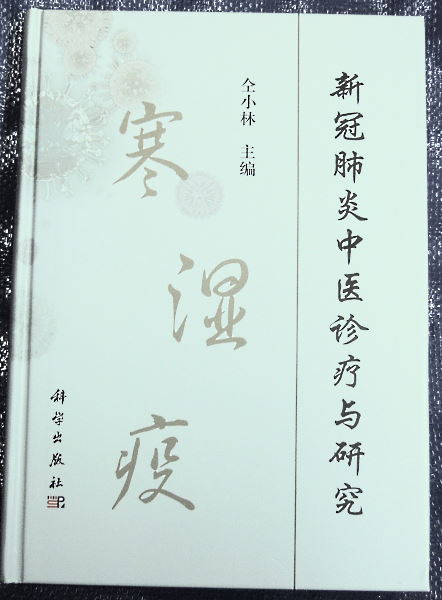 新冠肺炎中医诊疗与研究
仝小林 主编
寒湿疫
科学出版社